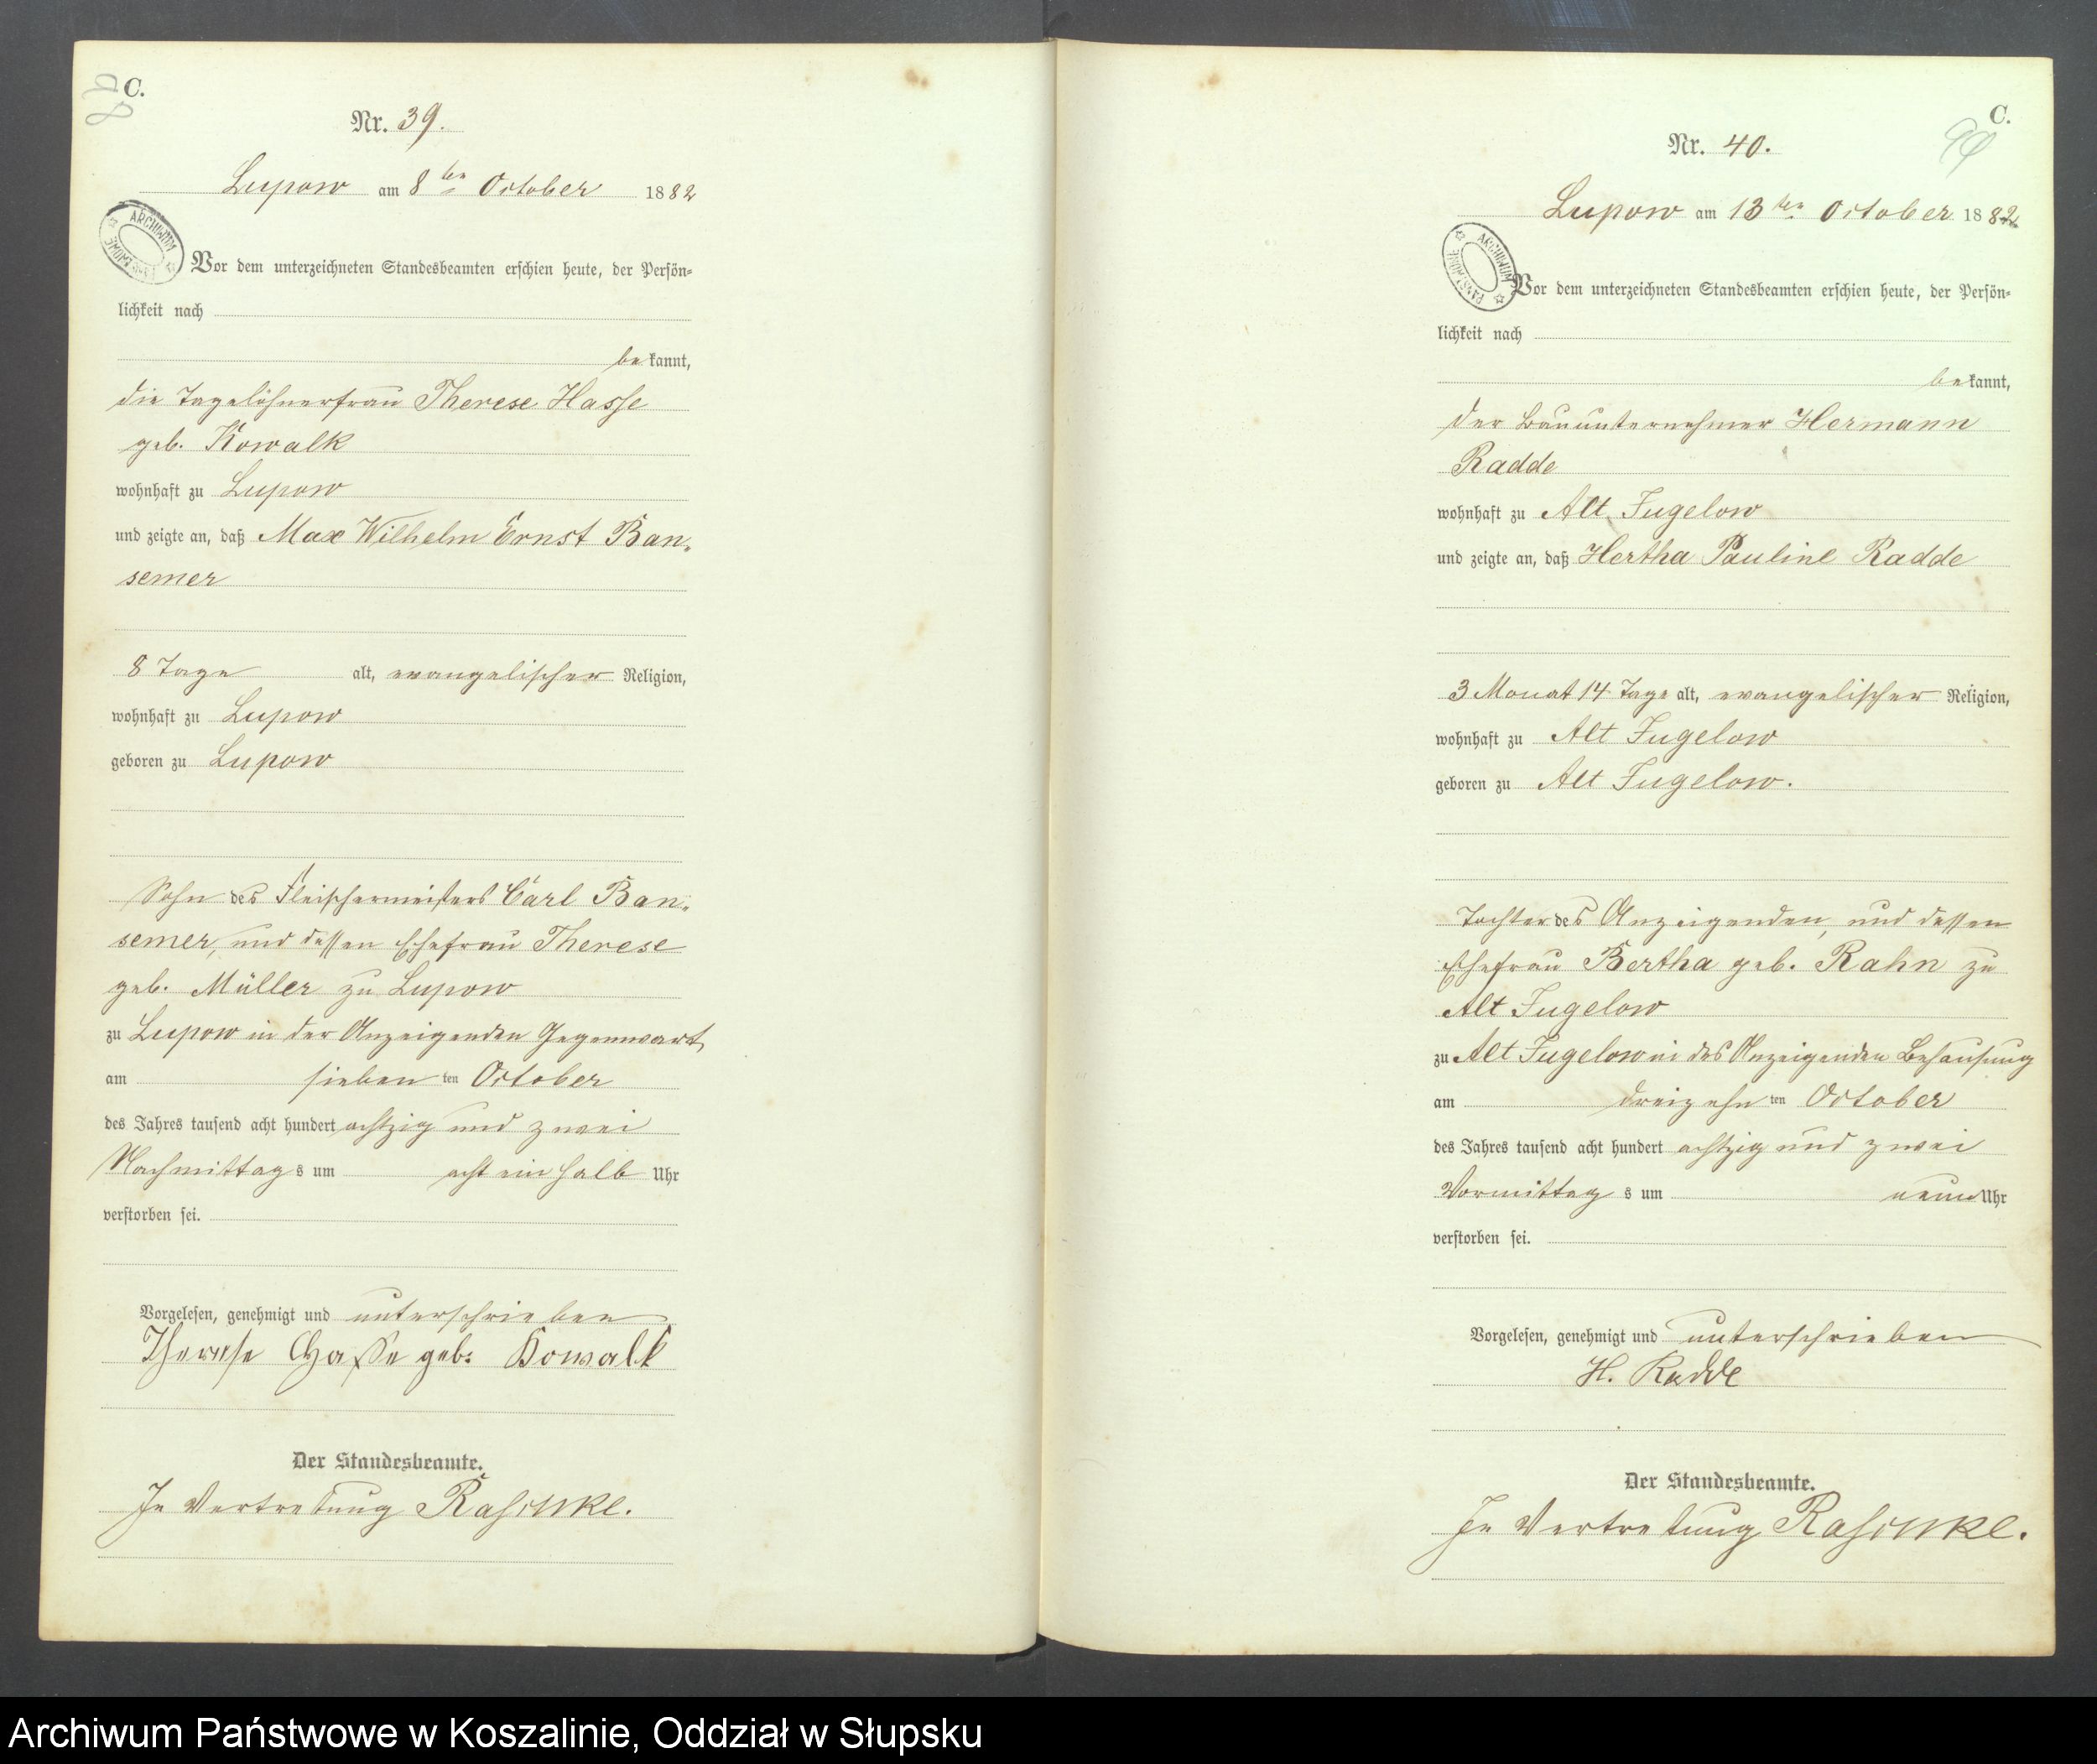 C.
Nr. 39.
Lupow am 8ten October 1882
ARCHIWUM PAŃSTWOWE
Vor dem unterzeichneten Standesbeamten erschien heute, der Persön-
lichkeit nach
bekannt,
die Tagelöhnerfrau Therese Hasse
geb. Kowalk
wohnhaft zu Lupow
und zeigte an, daß Max Wilhelm Ernst Ban-
semer
8 Tage alt, evangelischer Religion,
wohnhaft zu Lupow
geboren zu Lupow
Sohn des Fleischermeisters Carl Ban-
semer, und dessen Ehefrau Therese
geb. Müller zu Lupow
zu Lupow in der Anzeigenden Gegenwart
am sieben ten October
des Jahres tausend acht hundert achtzig und zwei
Nachmittags um acht ein halb Uhr
verstorben sei.
Vorgelesen, genehmigt und unterschrieben
Therese Hasse geb: Kowalk
Der Standesbeamte.
In Vertretung Raschke.
C.
Nr. 40.
Lupow am 13ten October 1882
ARCHIWUM PAŃSTWOWE
Vor dem unterzeichneten Standesbeamten erschien heute, der Persön-
lichkeit nach
bekannt,
der Bauunternehmer Hermann
Radde
wohnhaft zu Alt Jugelow
und zeigte an, daß Hertha Pauline Radde
3 Monat 14 Tage alt, evangelischer Religion,
wohnhaft zu Alt Jugelow
geboren zu Alt Jugelow.
Tochter des Anzeigenden, und dessen
Ehefrau Bertha geb. Rahn zu
Alt Jugelow
zu Alt Jugelow in des Anzeigenden Behausung
am dreizehn ten October
des Jahres tausend acht hundert achtzig und zwei
Vormittags um neun Uhr
verstorben sei.
Vorgelesen, genehmigt und unterschrieben
H. Radde
Der Standesbeamte.
In Vertretung Raschke.
Archiwum Państwowe w Koszalinie, Oddział w Słupsku